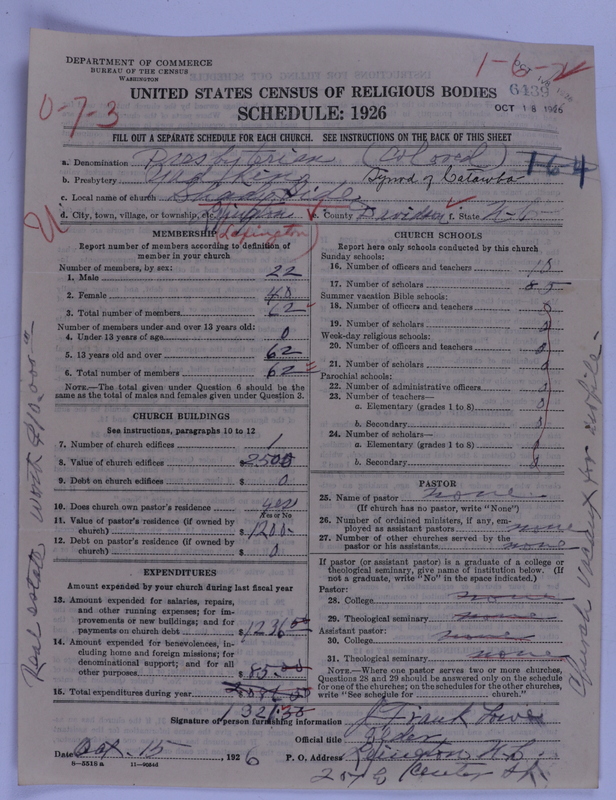 DEPARTMENT OF COMMERCE
BUREAU OF THE CENSUS
WASHINGTON
1-6-
6439
OCT 18 1926
0-7-3
UNITED STATES CENSUS OF RELIGIOUS BODIES
SCHEDULE: 1926
FILL OUT A SEPARATE SCHEDULE FOR EACH CHURCH. SEE INSTRUCTIONS ON THE BACK OF THIS SHEET
a. Denomination Presbyterian (Colored)
164
b. Presbytery Yadkin Synod of Catawba
c. Local name of church Shady Side
d. City, town, village, or township, etc. e. County Davidson f. State N.C.
Lexington
MEMBERSHIP
Report number of members according to definition of
member in your church
Number of members, by sex:
1. Male 22
2. Female 40
3. Total number of members 62
Number of members under and over 13 years old:
4. Under 13 years of age 0
5. 13 years old and over 62
6. Total number of members 62
NOTE.—The total given under Question 6 should be the
same as the total of males and females given under Question 3.
CHURCH BUILDINGS
See instructions, paragraphs 10 to 12
7. Number of church edifices 1
8. Value of church edifices $2500
9. Debt on church edifices $ 0
10. Does church own pastor's residence yes
Yes or No
11. Value of pastor's residence (if owned by
church) $1200
12. Debt on pastor's residence (if owned by
church) $ 0
EXPENDITURES
Amount expended by your church during last fiscal year
13. Amount expended for salaries, repairs,
and other running expenses; for im-
provements or new buildings; and for
payments on church debt $1236.00
14. Amount expended for benevolences, in-
cluding home and foreign missions; for
denominational support; and for all
other purposes $85.00
15. Total expenditures during year
CHURCH SCHOOLS
Report here only schools conducted by this church
Sunday schools:
16. Number of officers and teachers
17. Number of scholars 85
Summer vacation Bible schools:
18. Number of officers and teachers 0
19. Number of scholars 0
Week-day religious schools:
20. Number of officers and teachers 0
21. Number of scholars 0
Parochial schools:
22. Number of administrative officers 0
23. Number of teachers—
a. Elementary (grades 1 to 8) 0
b. Secondary 0
24. Number of scholars—
a. Elementary (grades 1 to 8) 0
b. Secondary 0
PASTOR
25. Name of pastor none
(If church has no pastor, write "None")
26. Number of ordained ministers, if any, em-
ployed as assistant pastors none
27. Number of other churches served by the
pastor or his assistants none
If pastor (or assistant pastor) is a graduate of a college or
theological seminary, give name of institution below. (If
not a graduate, write "No" in the space indicated.)
Pastor:
28. College none
29. Theological seminary none
Assistant pastor:
30. College none
31. Theological seminary none
NOTE.—Where one pastor serves two or more churches,
Questions 28 and 29 should be answered only on the schedule
for one of the churches; on the schedules for the other churches,
write "See schedule for church."
Signature of person furnishing information J. Frank Lowe
Official title Elder
Date Oct. 15, 1926 P. O. Address Lexington N.C.
8—5518 a
Center St.
Real estate worth $10,000
Church vacant for